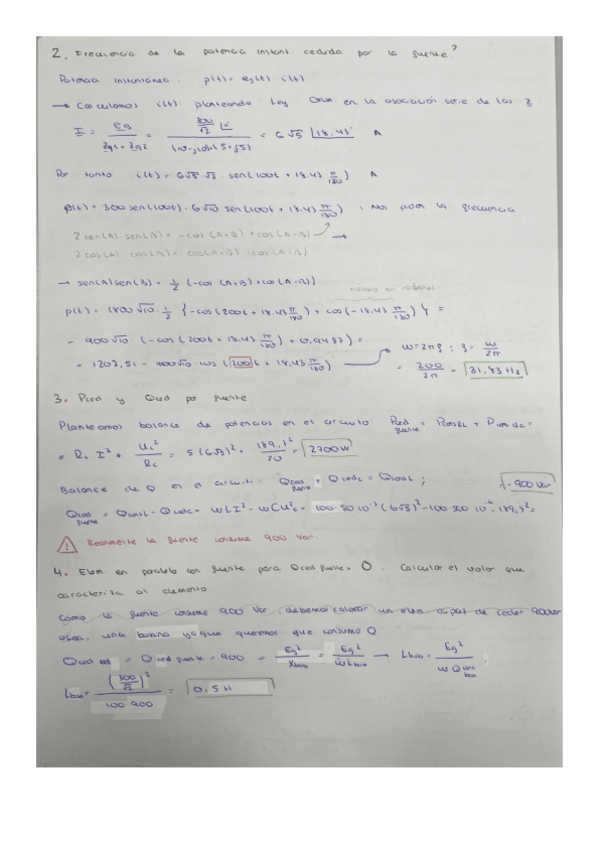 2. Frecuencia de la potencia instant. cedida por la fuente?
Potencia instantánea. p(t) = eg(t) · i(t)
→ Calculamos i(t) planteando Ley Ohm en la asociación serie de las Z
I = Eg / (Zg1 + Zg2) = = 6√5 |18.43° A
Por tanto i(t) = 6√5 · √2 sen(100t + 18.43 π/180) A
p(t) = 300 sen(100t) · 6√10 sen(100t + 18.43 π/180) ; nos piden la frecuencia
2 sen(A) sen(B) = -cos(A+B) + cos(A-B) →
2 cos(A) cos(B) = cos(A+B) + cos(A-B)
→ sen(A) sen(B) = 1/2 (-cos(A+B) + cos(A-B))
número en radianes
p(t) = 1800√10 · 1/2 {-cos(200t + 18.43 π/180) + cos(-18.43 π/180)} =
= 900√10 (-cos(200t + 18.43 π/180) + 0,9487) =
ω = 2πf ; f = ω/2π
= - 900√10 · cos(200t + 18,43 π/180)
= 200/2π = 31,83 Hz
3. Pced y Qced por fuente
Planteamos balance de potencias en el circuito Pced fuente = Pcons RL + Pcons Rc =
= RL I² + Uc²/Rc = 5(6√5)² + 189,7²/20 = 2700 W
Balance de Q en el circuito: Qced fuente + Qced c = Qcons L ;
-900 Var
Qced fuente = Qcons L - Qced c = ωLI² - ωCUc² = 100·50·10⁻³ (6√5)² - 100·500·10⁻⁶·189,7² =
Realmente la fuente consume 900 Var.
4. Elem. en paralelo con fuente para Qced fuente = 0. Calcular el valor que
caracteriza al elemento
Como la fuente consume 900 Var, debemos colocar un elem. capaz de ceder 900 Var
osea, una bobina ya que queremos que consuma Q
= Qced fuente = 900 = Eg²/Xbob = Eg²/ωLbob → Lbob = Eg²/ωQcons bob ;
Lbob = (300/√2)² / 100·900 = 0,5 H